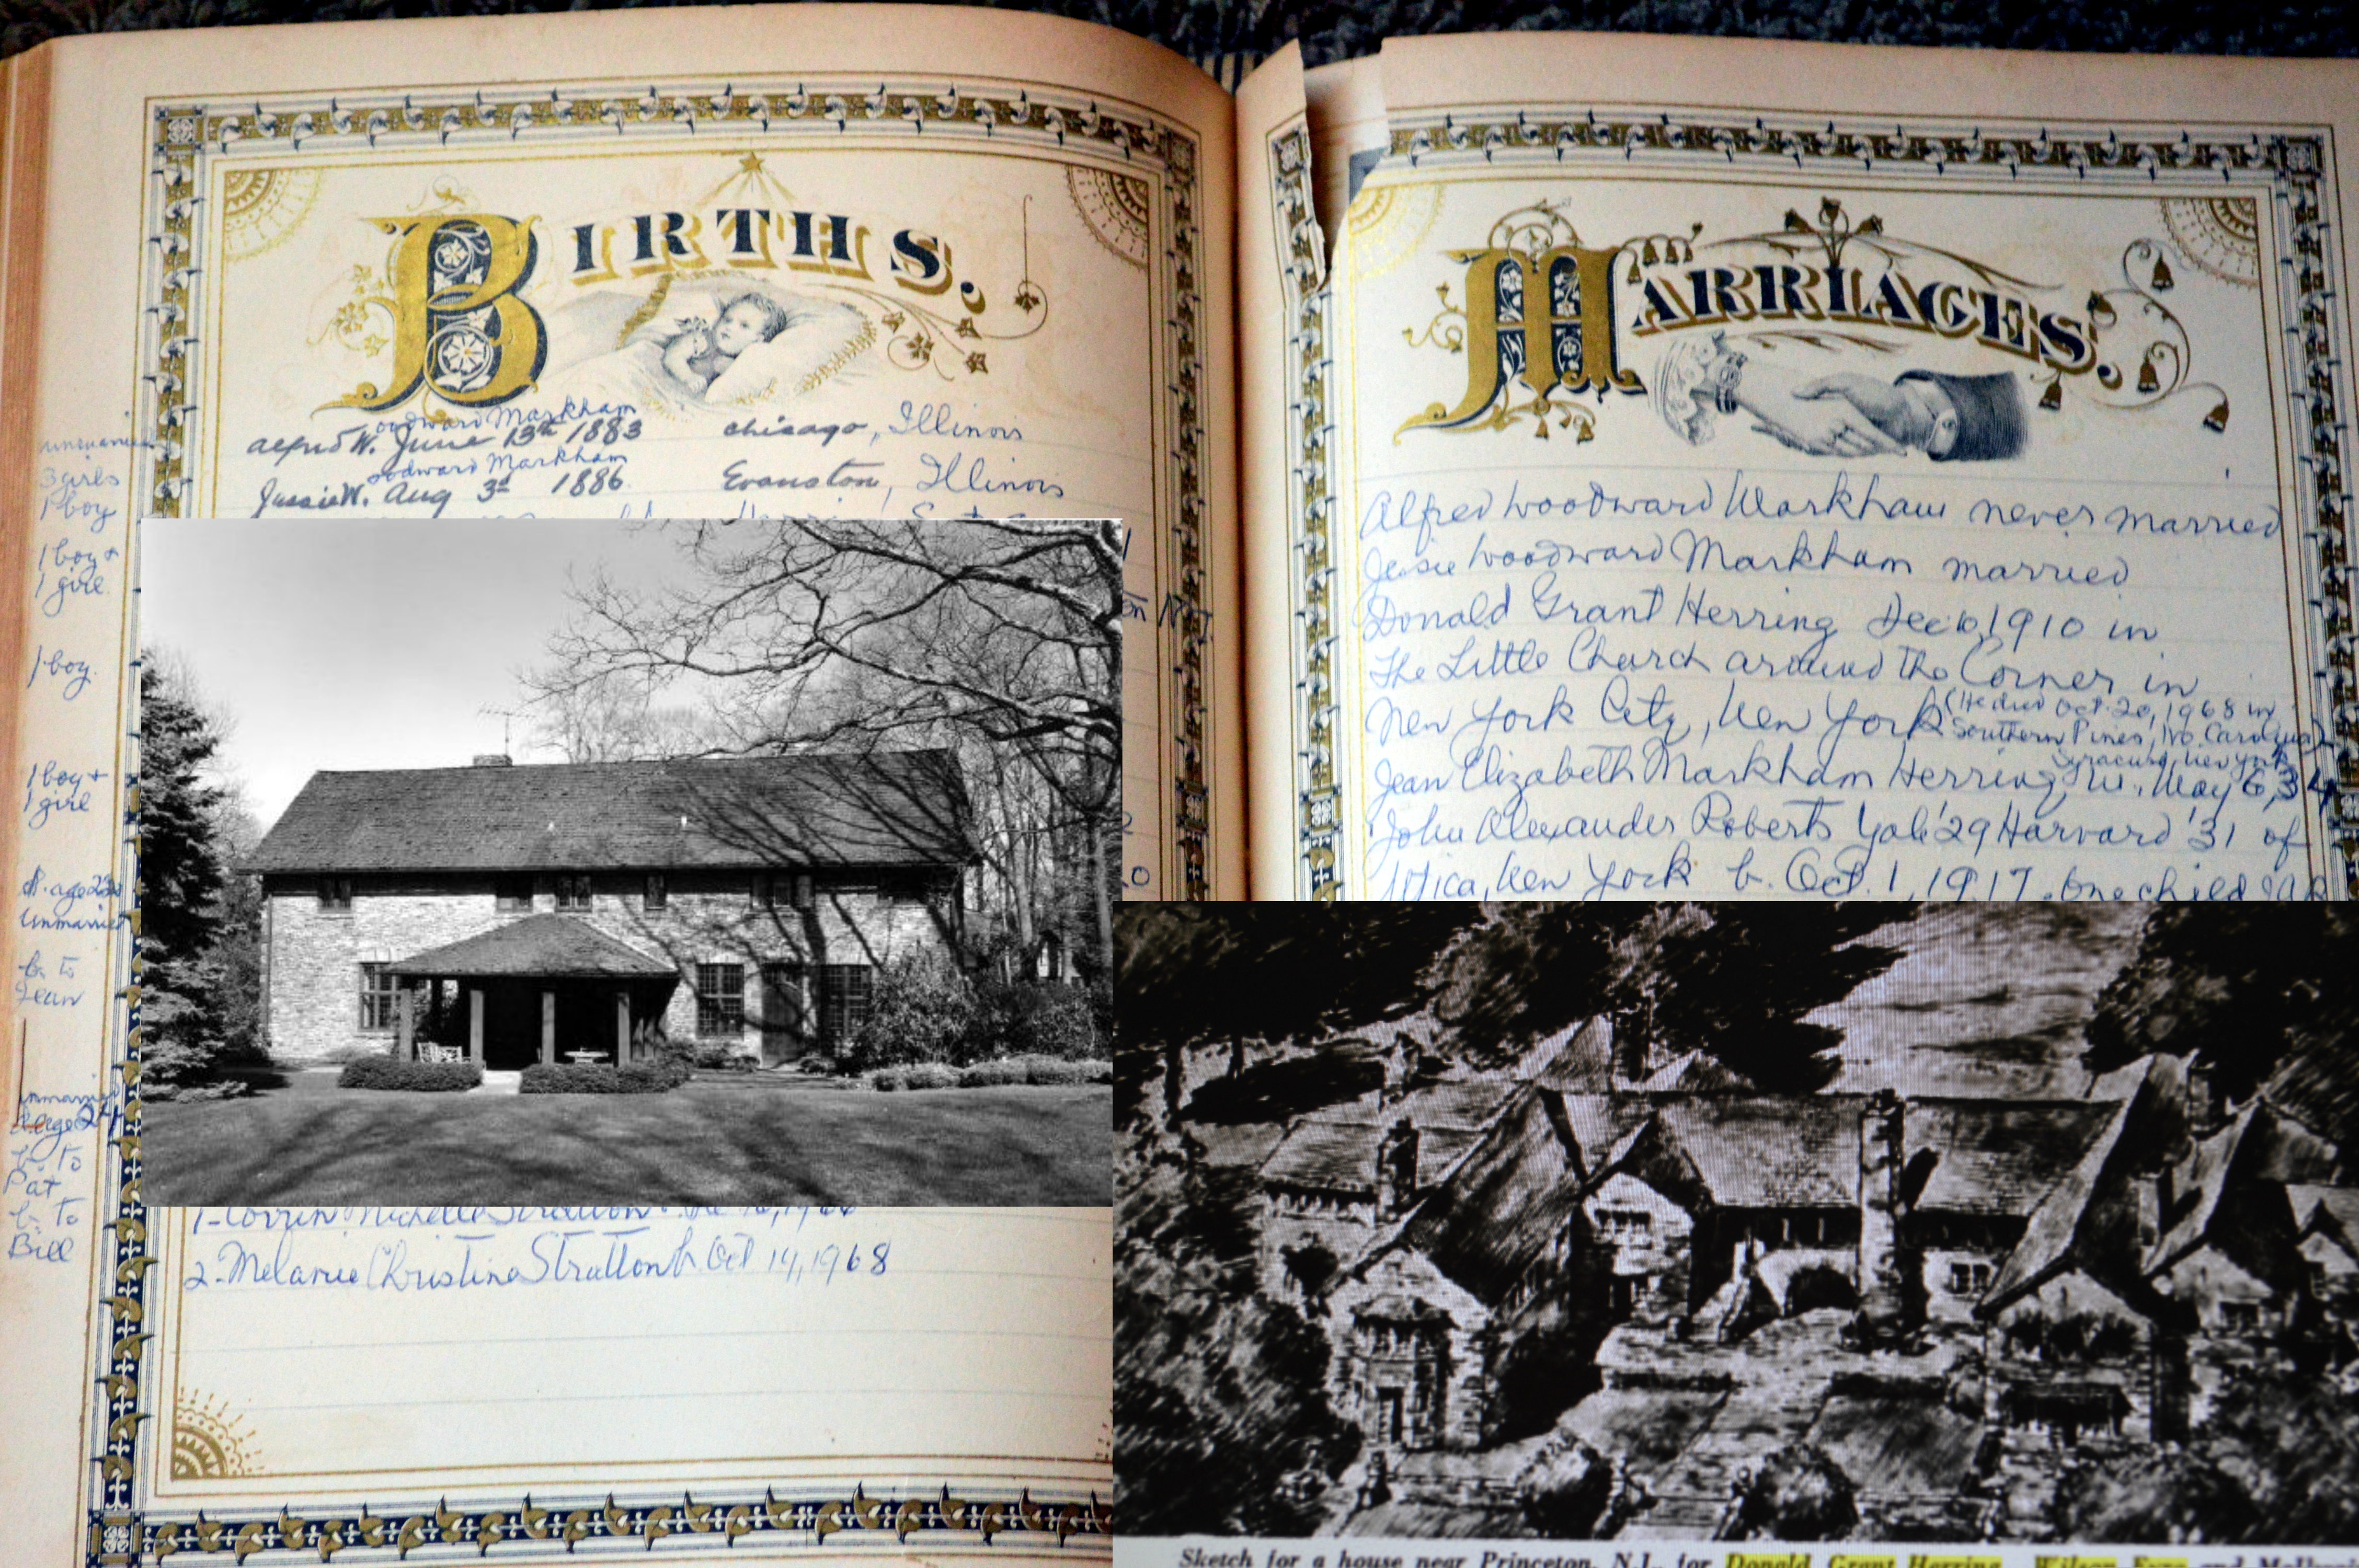 BIRTHS.
oodward Markham
Alfred W. June 13th 1883 Chicago, Illinois
oodward Markham
Jessie W. Aug 3d 1886 Evanston, Illinois
unmarried
3 girls
1 boy
1 boy +
1 girl
1 boy.
1 boy +
1 girl
unmarried
b. to
Jean
unmarried
b. to
Pat
b. to
Bill
2-Melanie Christine Stratton b. Oct 14, 1968
MARRIAGES.
Alfred Woodward Markham never married
Jessie Woodward Markham married
Donald Grant Herring Dec 6, 1910 in
The Little Church around the Corner in
New York City, New York (He died Oct. 20, 1968 in
Southern Pines, No. Carolina)
Syracuse, New York
Jean Elizabeth Markham Herring, m. May 6, 34
John Alexander Roberts Yale '29 Harvard '31 of
Utica, New York b. Oct. 1, 1917. One child
Sketch for a house near Princeton, N.J., for Donald Grant Herring